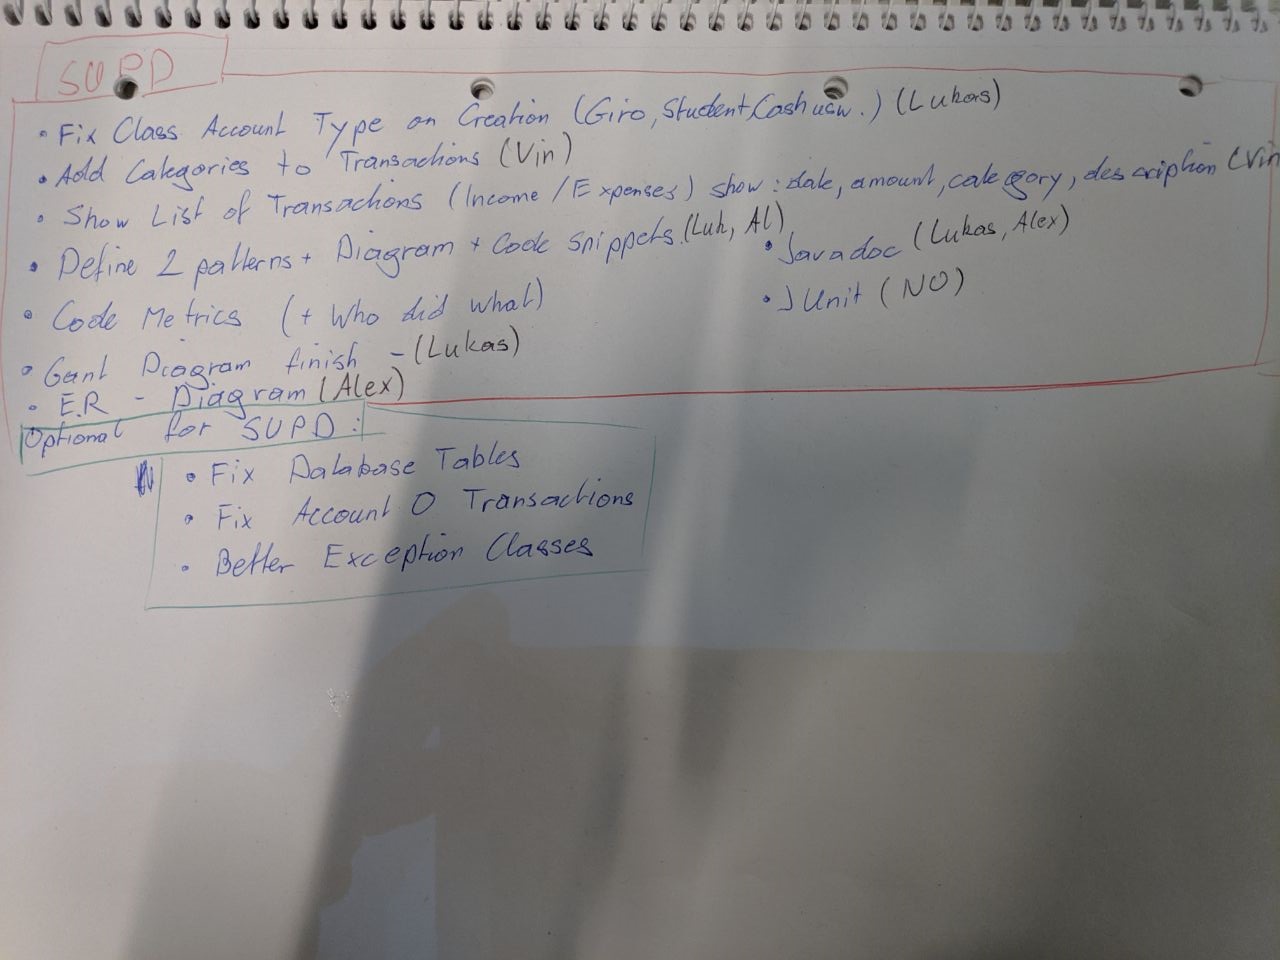 SUPD
• Fix Class Account Type on Creation (Giro, Student, Cash usw.) (Lukas)
• Add Categories to Transactions (Vin)
• Show List of Transactions (Income / Expenses) show: date, amount, category, description (Vin
• Define 2 patterns + Diagram + Code snippets (Luk, Al)
• Javadoc (Lukas, Alex)
• Code Metrics (+ Who did what)
• JUnit (NO)
• Gant Diagram finish - (Lukas)
• E.R - Diagram (Alex)
Optional for SUPD:
• Fix Database Tables
• Fix Account O Transactions
• Better Exception Classes